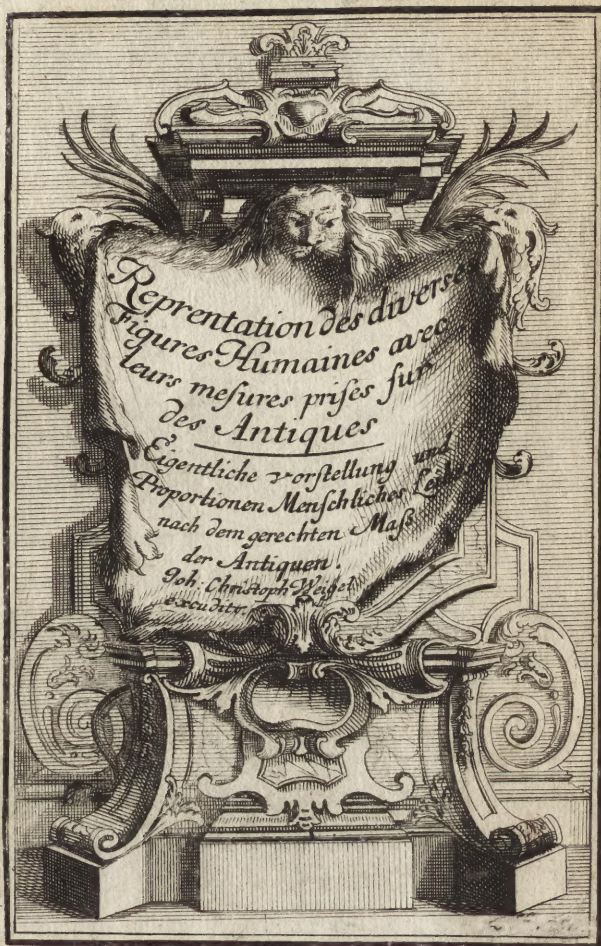 Reprentation des diverses
Figures Humaines avec
leurs mesures prises sur
des Antiques
Eigentliche vorstellung und
Proportionen Menschliches Leibes
nach dem gerechten Mass
der Antiquen.
Joh: Christoph Weigel
excudit.